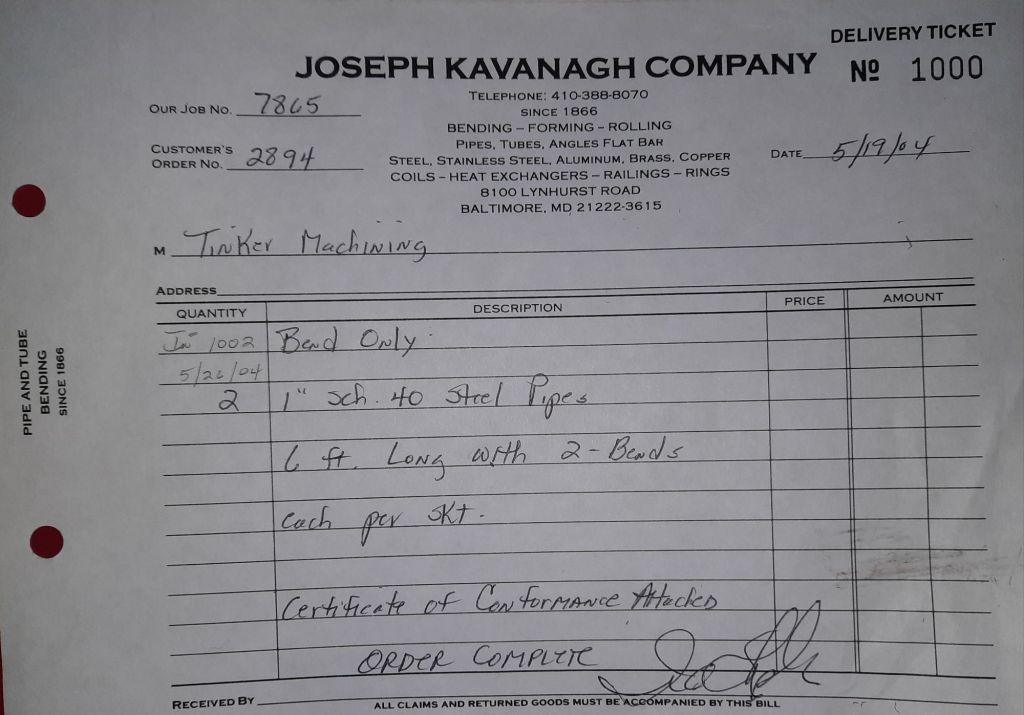 DELIVERY TICKET
JOSEPH KAVANAGH COMPANY
Nº 1000
TELEPHONE: 410-388-8070
SINCE 1866
BENDING – FORMING – ROLLING
PIPES, TUBES, ANGLES FLAT BAR
STEEL, STAINLESS STEEL, ALUMINUM, BRASS, COPPER
COILS – HEAT EXCHANGERS – RAILINGS – RINGS
8100 LYNHURST ROAD
BALTIMORE, MD 21222-3615
OUR JOB NO. 7865
CUSTOMER'S
ORDER NO. 2894
DATE 5/19/04
M Tinker Machining
ADDRESS
QUANTITY DESCRIPTION PRICE AMOUNT
1002 Bend Only
5/26/04
2 1" Sch. 40 Steel Pipes
6 ft. Long with 2-Bends
each per skt.
Certificate of Conformance Attached
ORDER COMPLETE
RECEIVED BY
ALL CLAIMS AND RETURNED GOODS MUST BE ACCOMPANIED BY THIS BILL
PIPE AND TUBE
BENDING
SINCE 1866